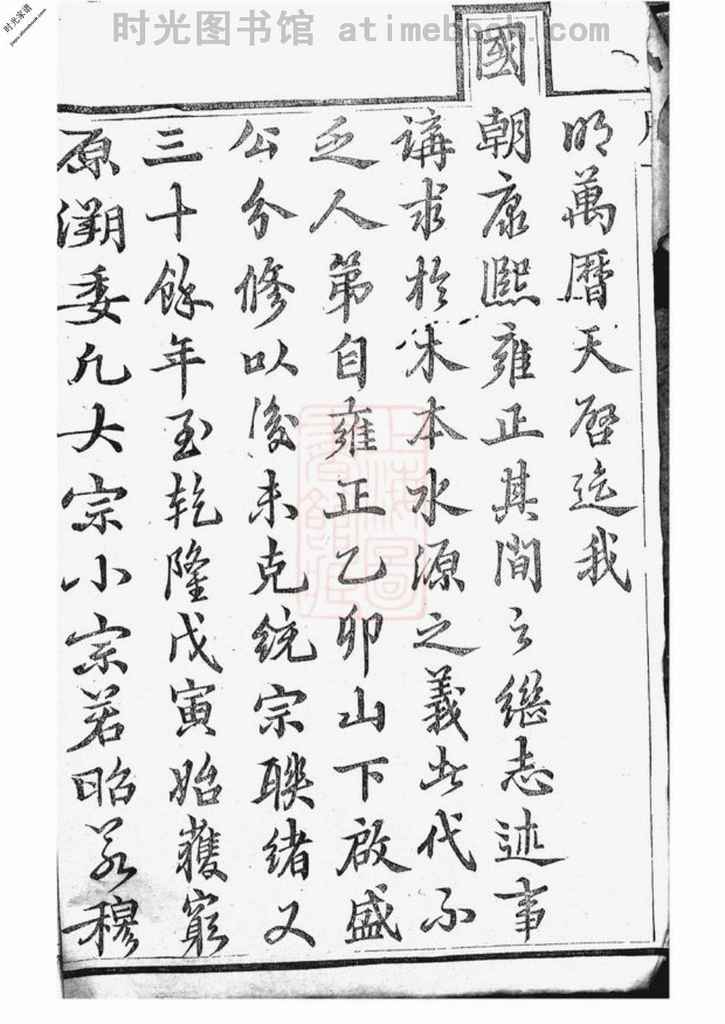 时光图书馆 atimebook.com
时光家谱
明萬曆天啓迄我
國朝康熙雍正其間之繼志述事
講求於木本水源之義者代不
乏人第自雍正乙卯山下啟盛
公分修以後未克統宗聯緒又
三十餘年至乾隆戊寅始獲窮
原溯委凡大宗小宗若昭若穆